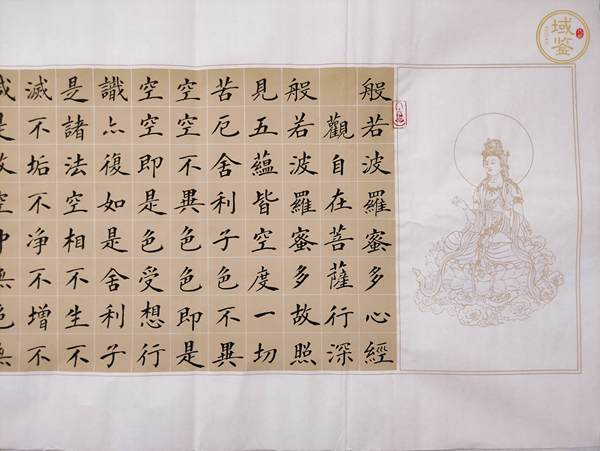 般若波羅蜜多心經
觀自在菩薩行深
般若波羅蜜多故照
見五蘊皆空度一切
苦厄舍利子色不異
空空不異色色即是
空空即是色受想行
識亦復如是舍利子
是諸法空相不生不
滅不垢不净不增不
域鑒